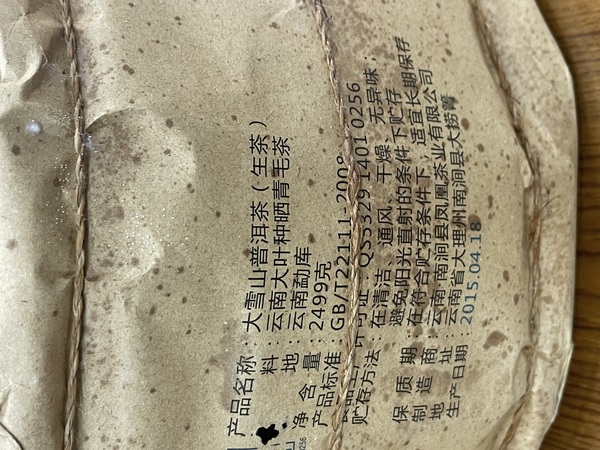 产品名称：大雪山普洱茶（生茶）
料：云南大叶种晒青毛茶
地：云南勐库
净含量：2499克
产品标准：GB/T22111-200
许可证：QS5329 1401 0256
贮存方法：在清洁、通风、干燥、无异味，
避免阳光直射的条件下贮存
保质期：在符合贮存条件下，适宜长期保存
制造商：云南 南涧县凤凰茶业有限公司
地址：云南省大理州南涧县大捞箐
生产日期：2015.04.18
0256